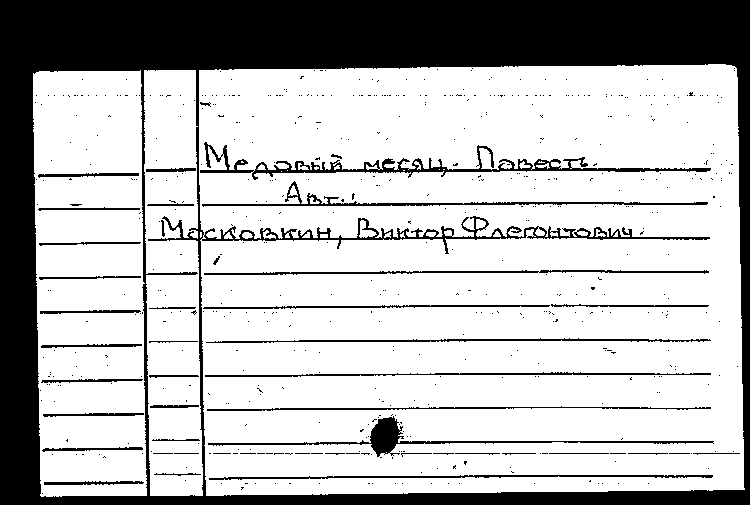 Медовый месяц. Повесть.
Авт.:
Московкин, Виктор Флегонтович.